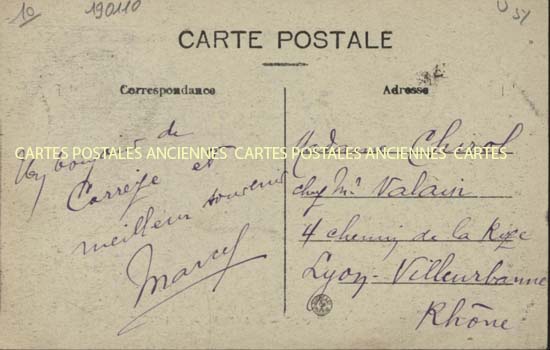 10
190110
CARTE POSTALE
Correspondance
Adresse
CARTES POSTALES ANCIENNES CARTES POSTALES ANCIENNES CARTES
Un bonjour de
Corrèze et
meilleur souvenir
Marcel
Madame Cherol
chez Mr Valain
4 chemin de la
Lyon-Villeurbanne
Rhône